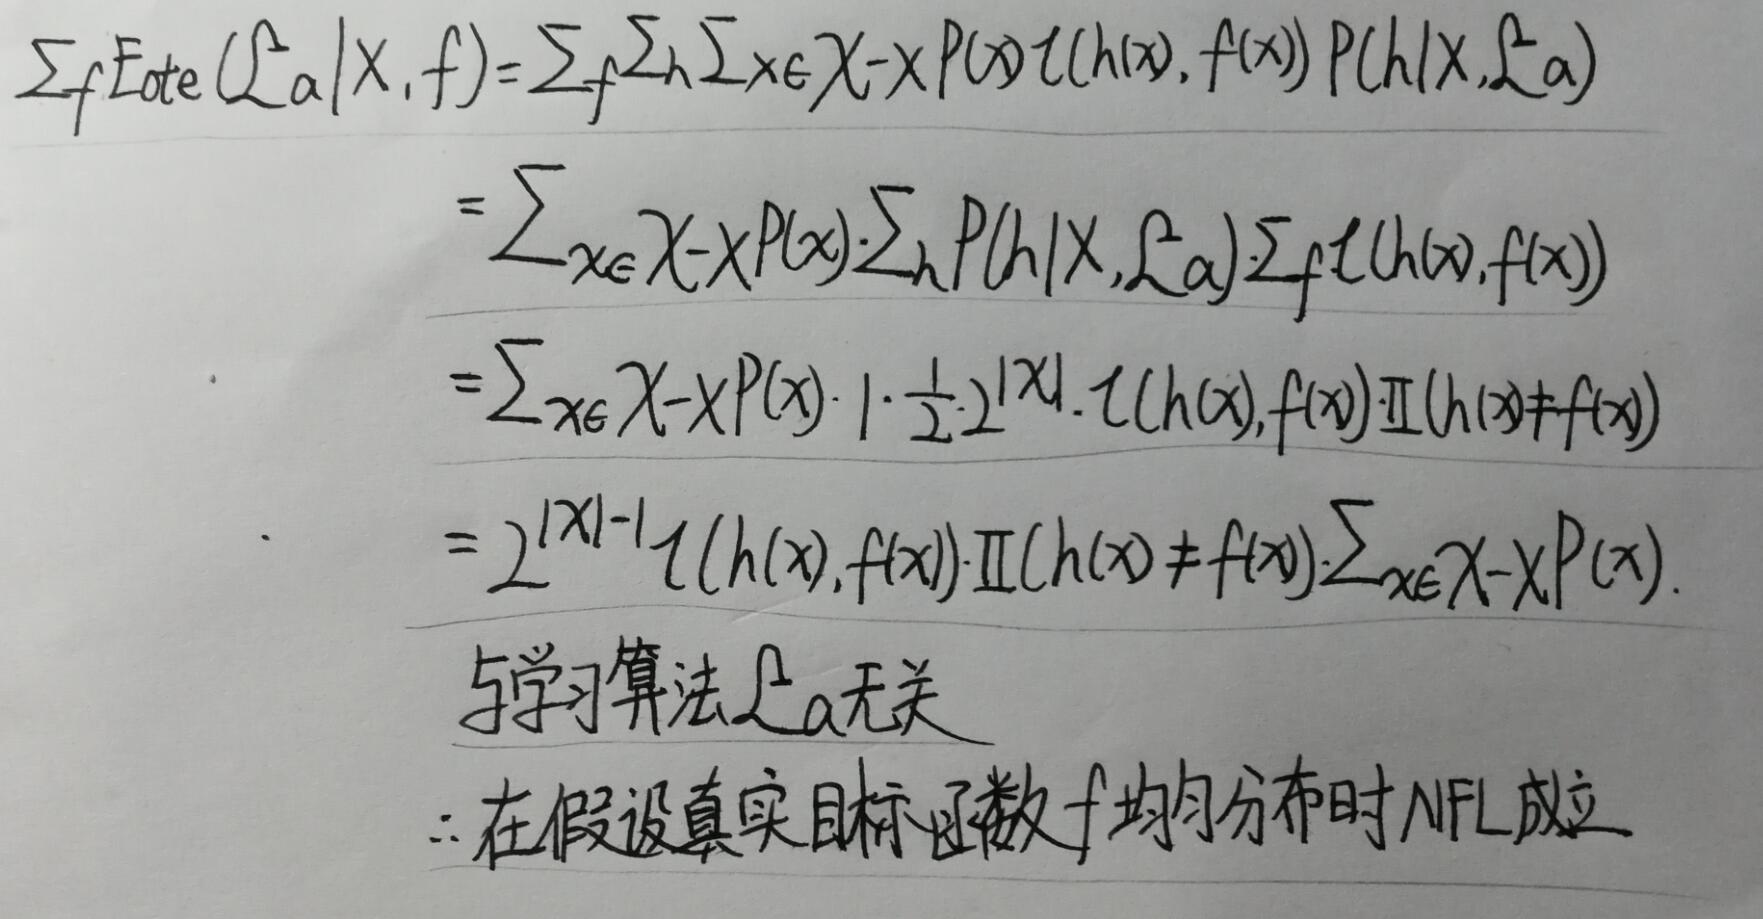 Σ_f E_ote(𝔏_a|X,f)=Σ_f Σ_h Σ_{x∈𝒳-X} P(x) l(h(x),f(x)) P(h|X,𝔏_a)
=Σ_{x∈𝒳-X} P(x)·Σ_h P(h|X,𝔏_a)·Σ_f l(h(x),f(x))
=Σ_{x∈𝒳-X} P(x)·1·1/2·2^{|𝒳|}·l(h(x),f(x))·𝕀(h(x)≠f(x))
=2^{|𝒳|-1} l(h(x),f(x))·𝕀(h(x)≠f(x))·Σ_{x∈𝒳-X} P(x).
与学习算法𝔏_a无关
∴在假设真实目标函数f均匀分布时NFL成立